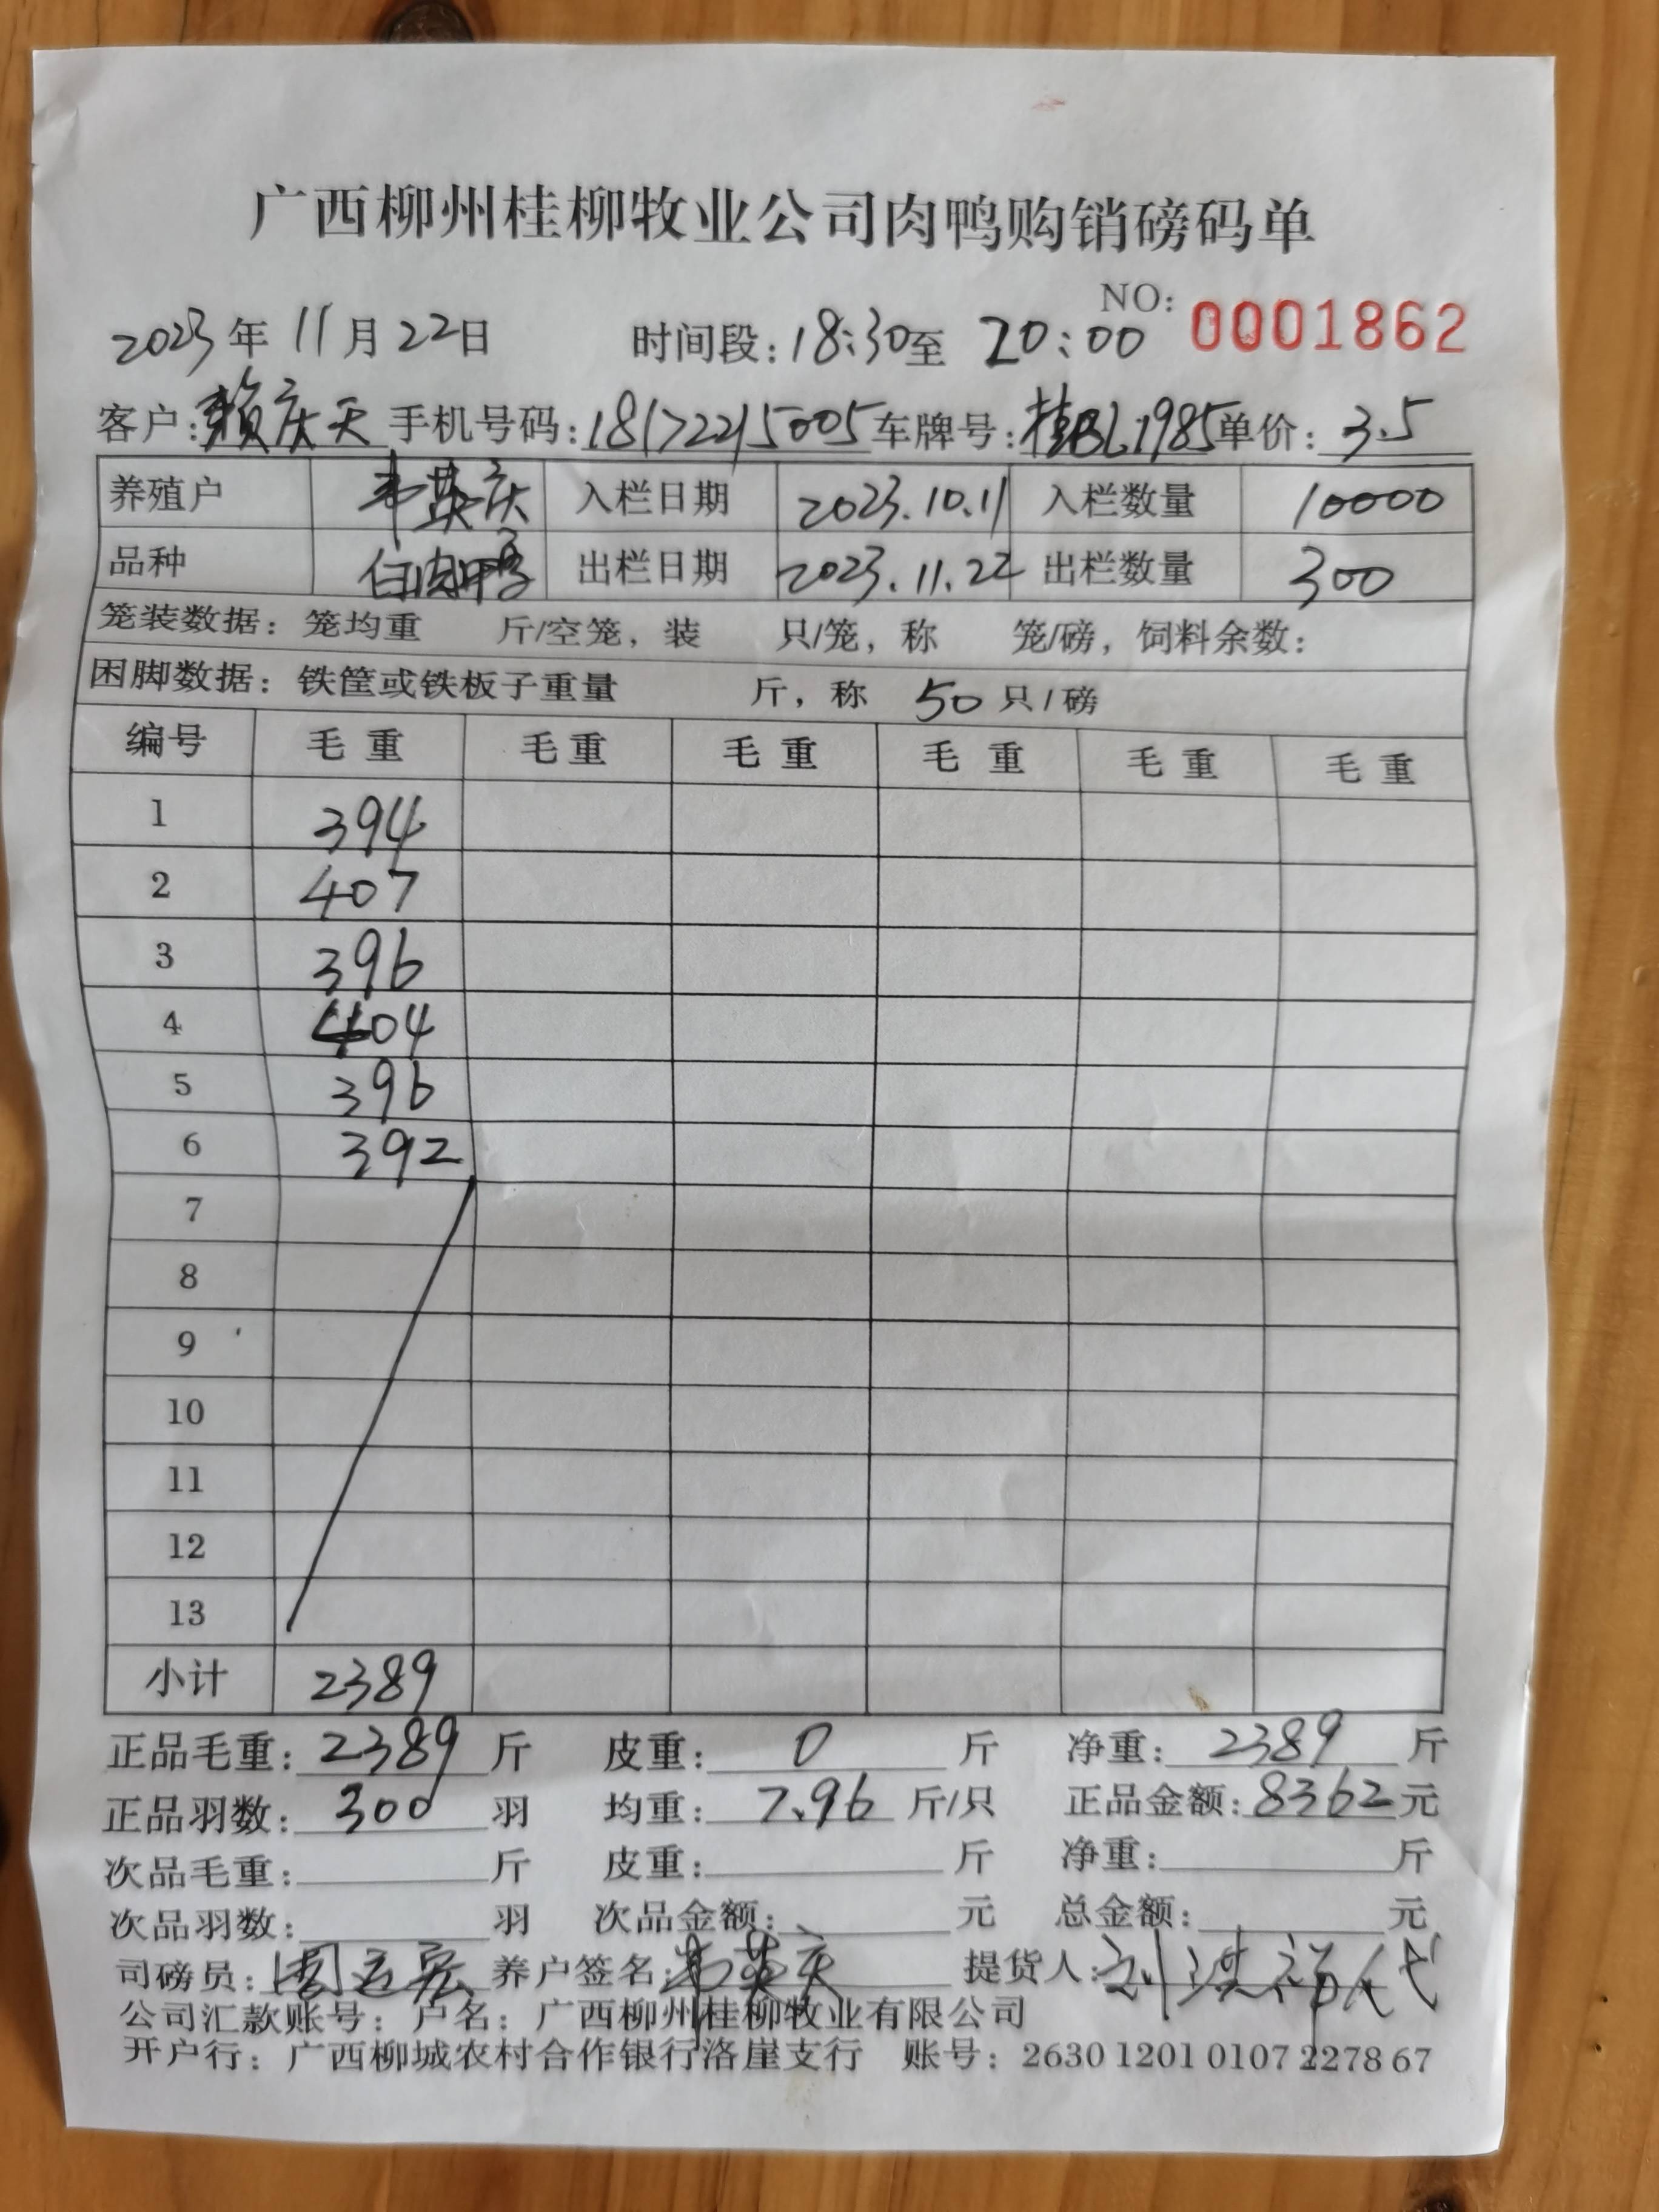 广西柳州桂柳牧业公司肉鸭购销磅码单
NO: 0001862
2023年11月22日 时间段:18:30至 20:00
客户:赖庆天 手机号码:18172215005 车牌号:桂BL1985 单价:3.5
养殖户 韦英庆 入栏日期 2023.10.11 入栏数量 10000
品种 白肉鸭 出栏日期 2023.11.22 出栏数量 300
笼装数据:笼均重 斤/空笼,装 只/笼,称 笼/磅,饲料余数:
困脚数据:铁筐或铁板子重量 斤,称 50只/磅
编号 毛重 毛重 毛重 毛重 毛重 毛重
1 394
2 407
3 396
4 404
5 396
6 392
7
8
9
10
11
12
13
小计 2389
正品毛重:2389斤 皮重:0斤 净重:2389斤
正品羽数:300羽 均重:7.96斤/只 正品金额:8362元
次品毛重: 斤 皮重: 斤 净重: 斤
次品羽数: 羽 次品金额: 元 总金额: 元
司磅员: 养户签名:韦英庆 提货人:刘洪福代
公司汇款账号:户名:广西柳州桂柳牧业有限公司
开户行:广西柳城农村合作银行洛崖支行 账号:2630 1201 0107 2278 67